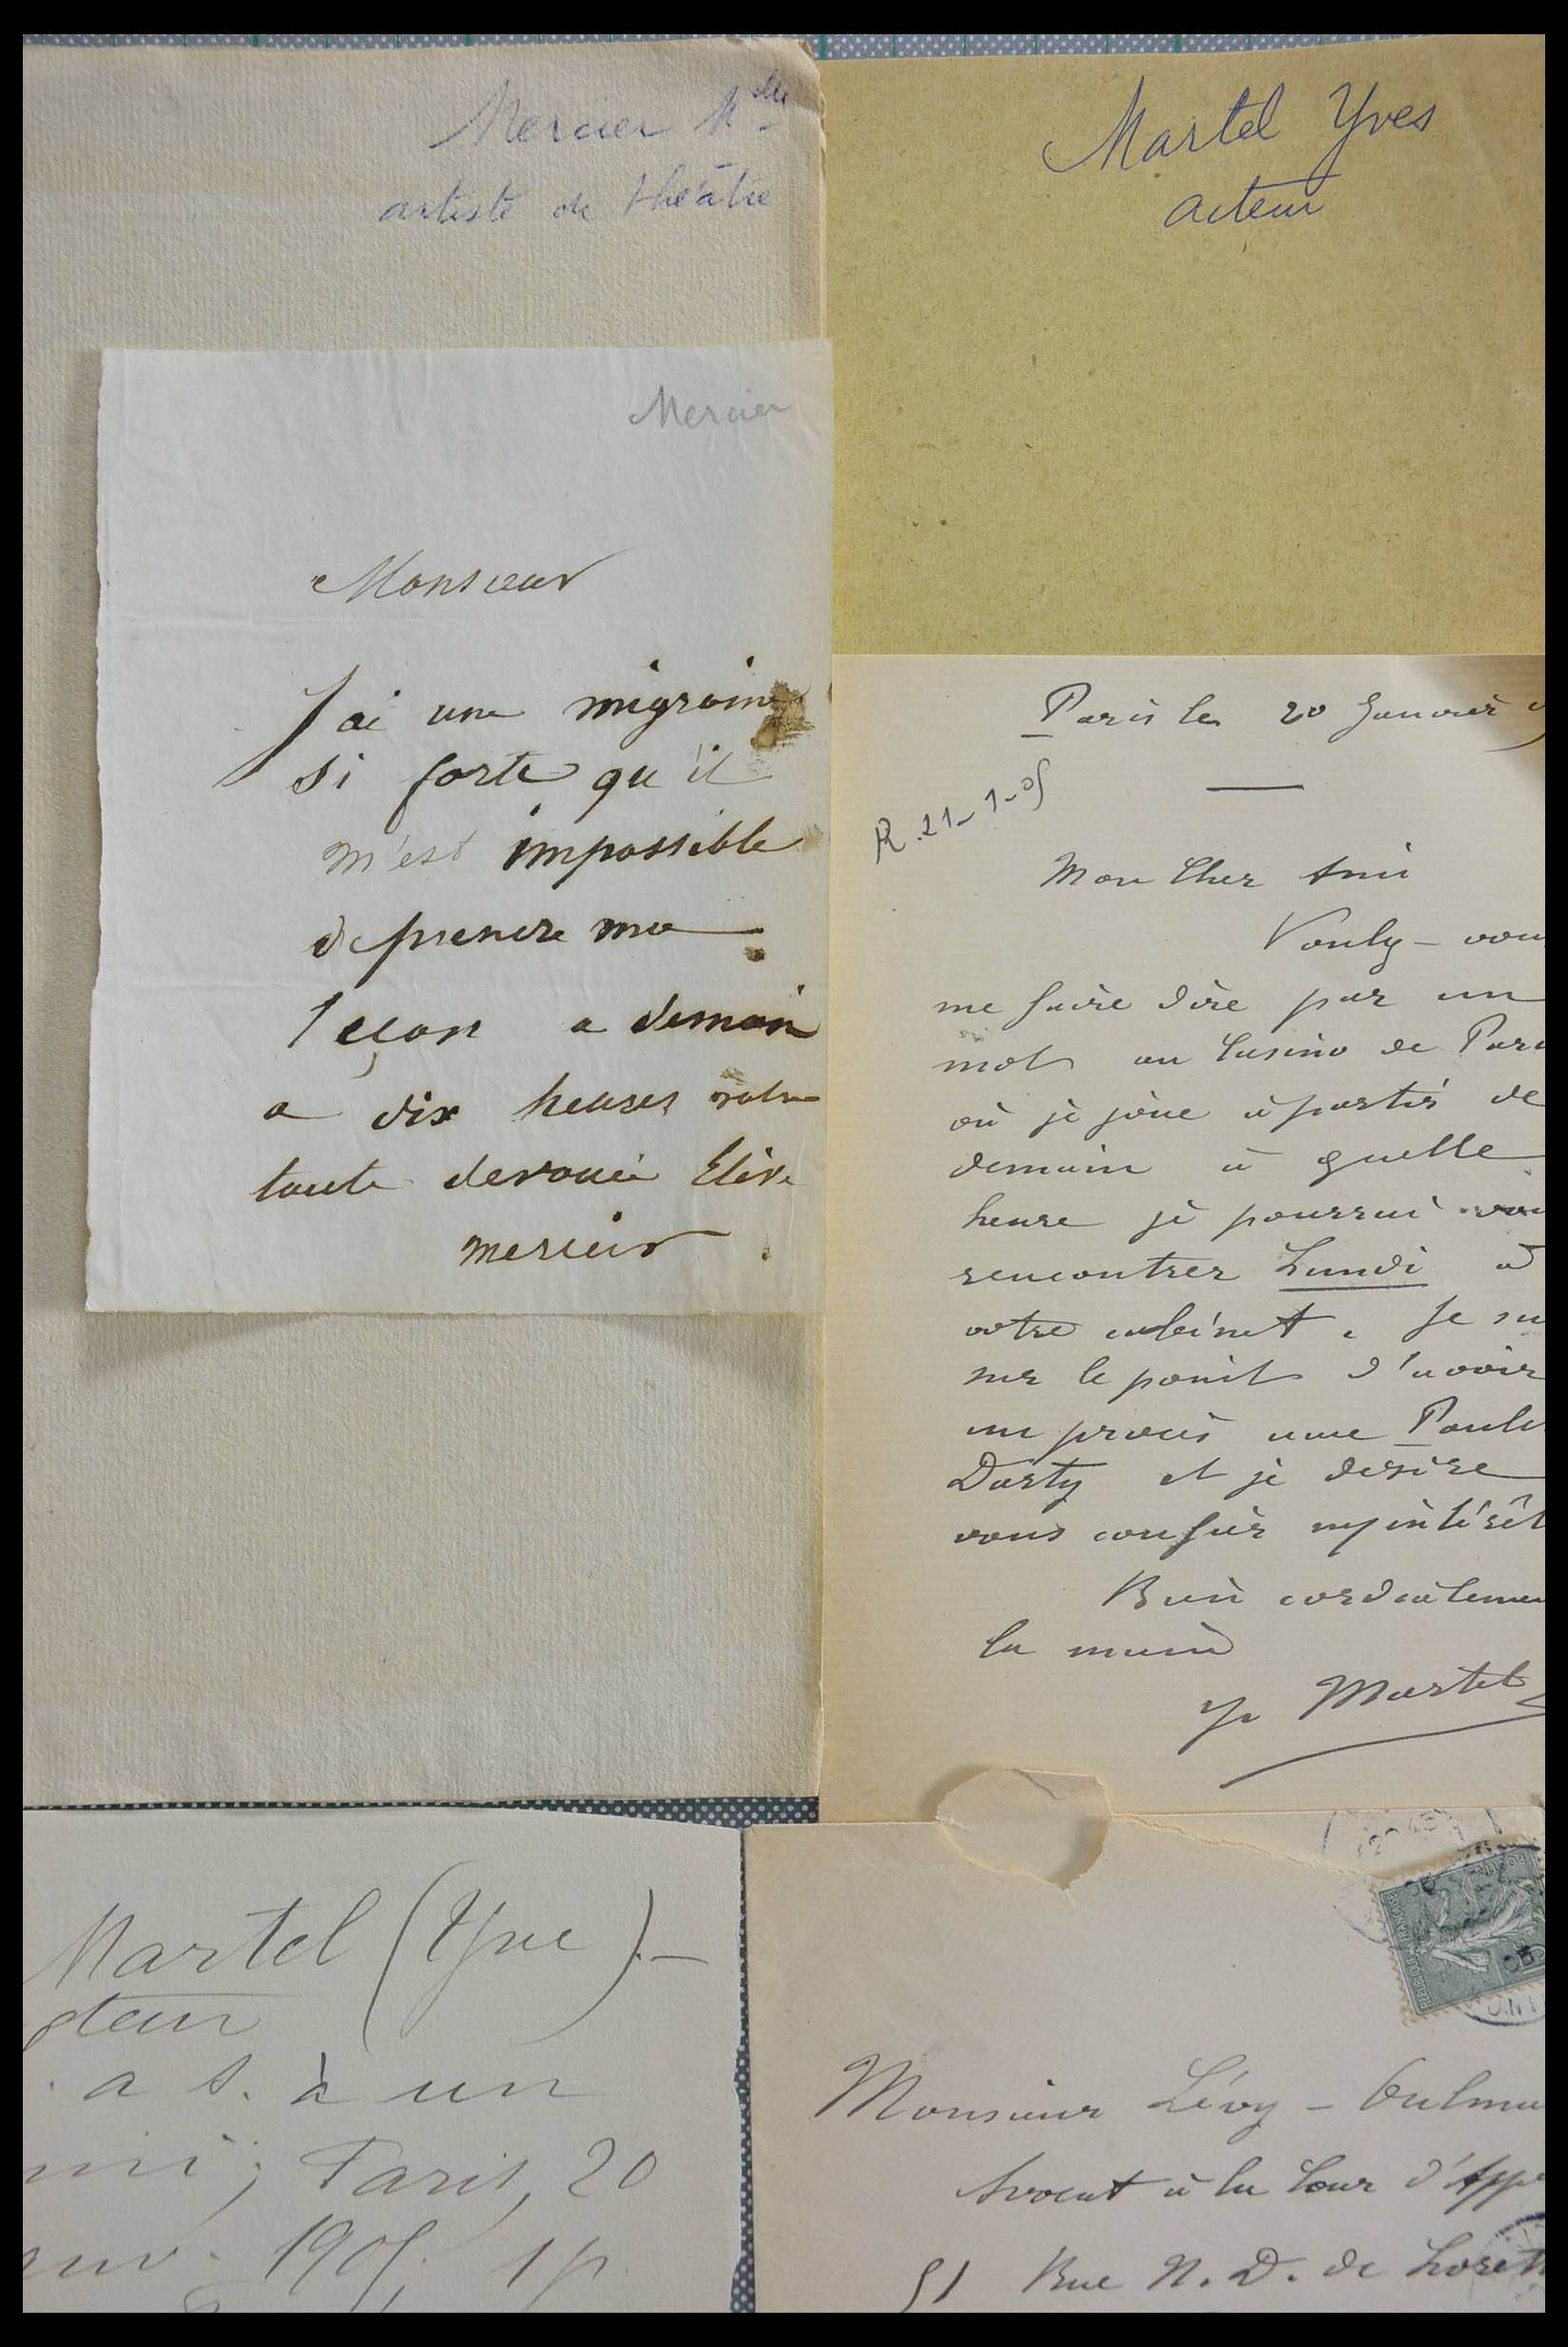 Mercier Mlle
artiste de théâtre
Mercier
Monsieur
J'ai une migraine
si forte qu'il
m'est impossible
de prendre ma
leçon a demain
a dix heures votre
toute devouée Elève
mercier
Martel Yves
acteur
Paris le 20 Janvier
R. 21-1-05
Mon Cher Ami
Voulez-vou
me faire dire par un
mot au Casino de Pari
où je joue à partir de
demain à quelle
heure je pourrai vou
rencontrer Lundi à
votre cabinet. Je su
sur le point d'avoir
un procès avec Paule
Darty et je desire
vous confier mes intérêt
Bien cordialemen
la main
Y. Martel
Martel (Yve).-
cteur
a s. à un
mi; Paris, 20
anv. 1905; 1 p.
Monsieur Lévy-Oulma
Avocat à la Cour d'Appe
51 Rue N. D. de Lorett